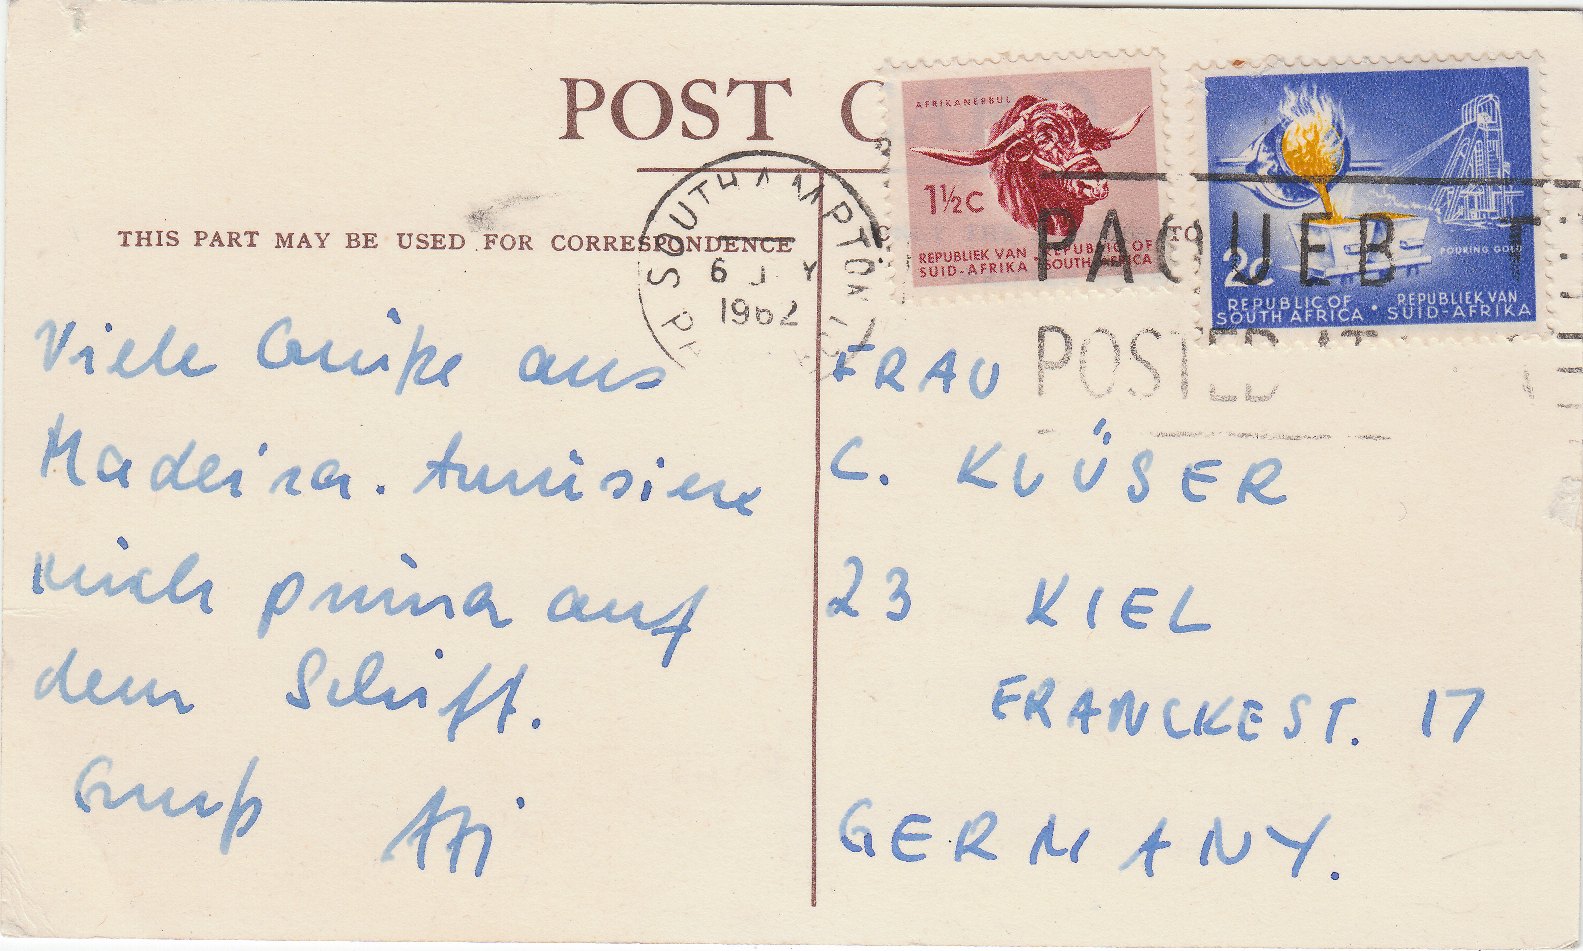 POST C
THIS PART MAY BE USED FOR CORRESPONDENCE
SOUTHAMPTON
6 J Y
1962
AFRIKANERBUL
1½C
REPUBLIEK VAN SUID-AFRIKA · REPUBLIC OF SOUTH AFRICA
TO
POURING GOLD
2C
REPUBLIC OF SOUTH AFRICA · REPUBLIEK VAN SUID-AFRIKA
PAQUEBOT
POSTED AT
Viele Grüße aus
Madeira. Amüsiere
mich prima auf
dem Schiff.
Gruß
FRAU
C. KLÜSER
23 KIEL
FRANCKEST. 17
GERMANY.